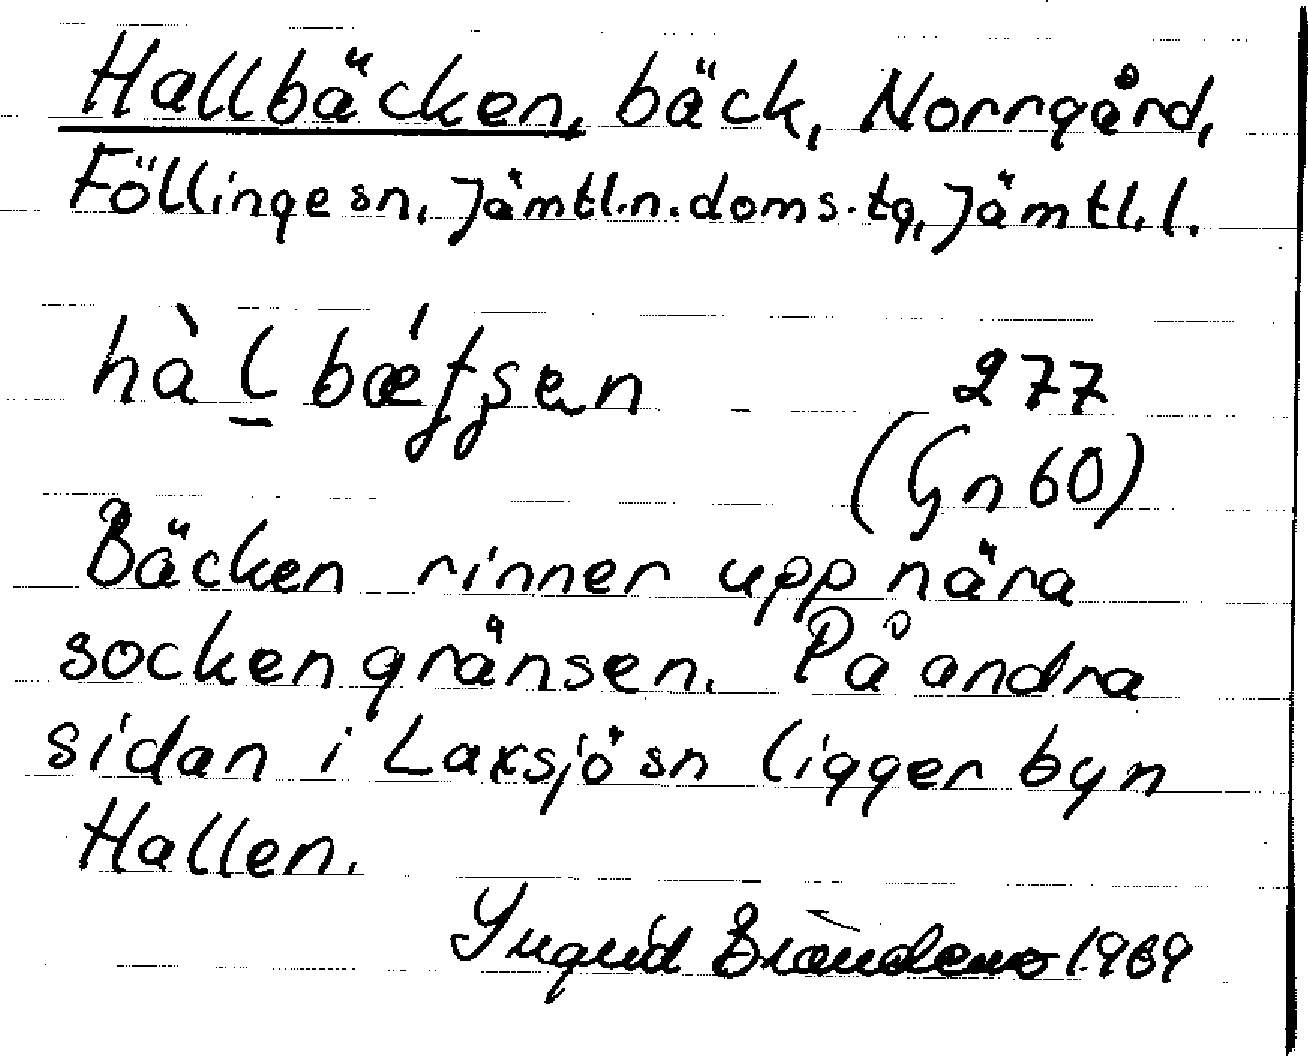 Hallbäcken, bäck, Norrgård,
Föllinge sn, Jämtl.n.doms.tg, Jämtl.l.
277
(Gn 60)
Bäcken rinner upp nära
sockengränsen. På andra
sidan i Laxsjö sn ligger byn
Hallen.
Ingrid 1969